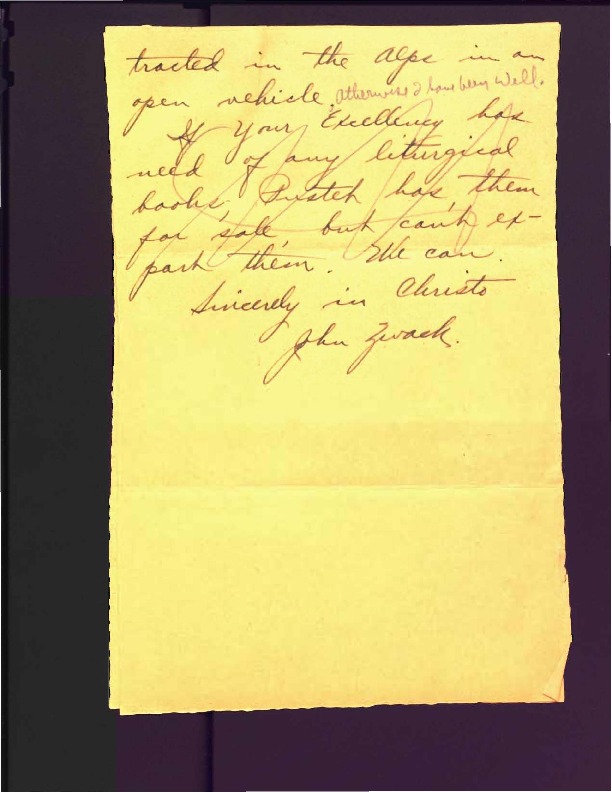 tracted in the Alps in an
open vehicle. Otherwise I have been well.
If Your Excellency has
need of any liturgical
books, Pustet has them
for sale but can't ex-
port them. We can.
Sincerely in Christo
John Zwack.